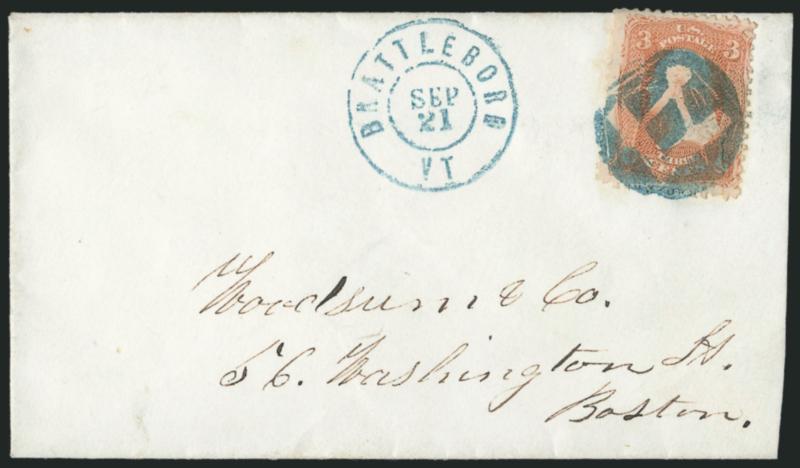 BRATTLEBORO
SEP
21
VT
3 U.S. 3
POSTAGE
Woodsum & Co.
56. Washington St.
Boston.